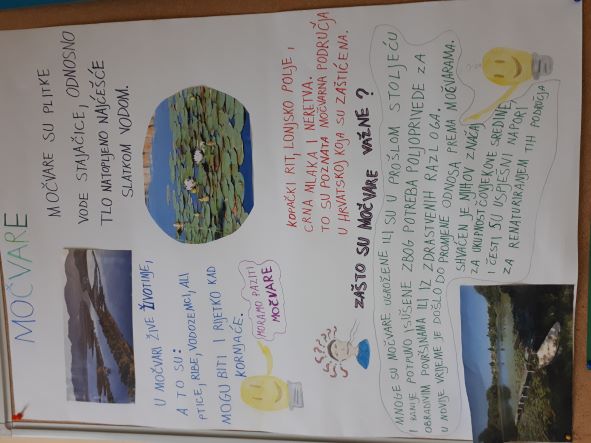 MOČVARE
MOČVARE SU PLITKE
VODE STAJAČICE, ODNOSNO
TLO NATOPLJENO NAJČEŠĆE
SLATKOM VODOM.
U MOČVARI ŽIVE ŽIVOTINJE,
A TO SU:
PTICE, RIBE, VODOZEMCI, ALI
MOGU BITI I RIJETKO KAD
KORNJAČE.
MORAMO PAZITI
MOČVARE
KOPAČKI RIT, LONJSKO POLJE,
CRNA MLAKA I NERETVA.
TO SU POZNATA MOČVARNA PODRUČJA
U HRVATSKOJ KOJA SU ZAŠTIĆENA.
ZAŠTO SU MOČVARE VAŽNE?
MNOGE SU MOČVARE UGROŽENE ILI SU U PROŠLOM STOLJEĆU
I RANIJE POTPUNO ISUŠENE ZBOG POTREBA POLJOPRIVEDE ZA
OBRADIVIM POVRŠINAMA ILI IZ ZDRASTVENIH RAZLOGA.
U NOVIJE VRIJEME JE DOŠLO DO PROMJENE ODNOSA PREMA MOČVARAMA.
SHVAĆEN JE NJIHOV ZNAČAJ
ZA UKUPNOST ČOVJEKOVE SREDINE,
I ČESTI SU USPJEŠNI NAPORI
ZA RENATURIRANJEM TIH PODRUČJA